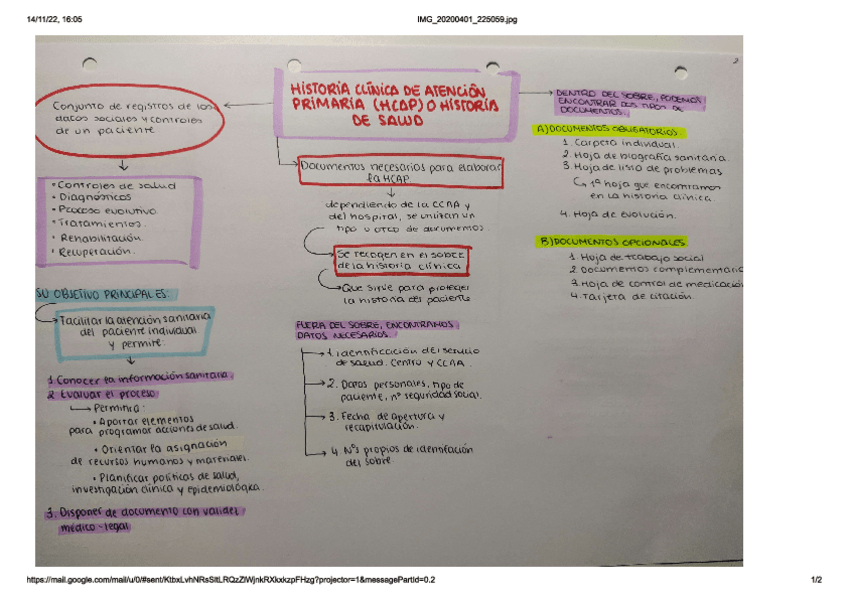 14/11/22, 16:05
IMG_20200401_225059.jpg
2
HISTORIA CLÍNICA DE ATENCIÓN
PRIMARIA (HCAP) O HISTORIA
DE SALUD
Conjunto de registros de los
datos sociales y controles
de un paciente
• Controles de salud
• Diagnósticos
• Proceso evolutivo.
• Tratamientos.
• Rehabilitación.
• Recuperación.
SU OBJETIVO PRINCIPAL ES:
Facilitar la atención sanitaria
del paciente individual
y permite:
1. Conocer la información sanitaria.
2. Evaluar el proceso
Permitirá:
• Aportar elementos
para programar acciones de salud.
• Orientar la asignación
de recursos humanos y materiales.
• Planificar políticas de salud,
investigación clínica y epidemiológica.
3. Disponer de documento con validez
médico-legal
Documentos necesarios para elaborar
la HCAP
dependiendo de la CCAA y
del hospital, se utilitan un
tipo u otro de documentos.
Se recogen en el sobre
de la historia clínica
Que sirve para proteger
la historia del paciente
FUERA DEL SOBRE, ENCONTRAMOS
DATOS NECESARIOS.
1. Identificación del servicio
de salud. Centro y CCAA.
2. Datos personales, tipo de
paciente, nº seguridad social.
3. Fecha de apertura y
recapitulación.
4. Nºs propios de identificación
del sobre.
DENTRO DEL SOBRE, PODEMOS
ENCONTRAR DOS TIPOS DE
DOCUMENTOS.
A) DOCUMENTOS OBLIGATORIOS.
1. Carpeta individual.
2. Hoja de biografía sanitaria.
3. Hoja de lista de problemas
1ª hoja que encontramos
en la historia clínica.
4. Hoja de evolución.
B) DOCUMENTOS OPCIONALES.
1. Hoja de trabajo social
2. Documentos complementario
3. Hoja de control de medicación
4. Tarjeta de citación.
https://mail.google.com/mail/u/0/#sent/KtbxLvhNRsSltLRQzZlWjnkRXkxkzpFHzg?projector=1&messagePartId=0.2
1/2